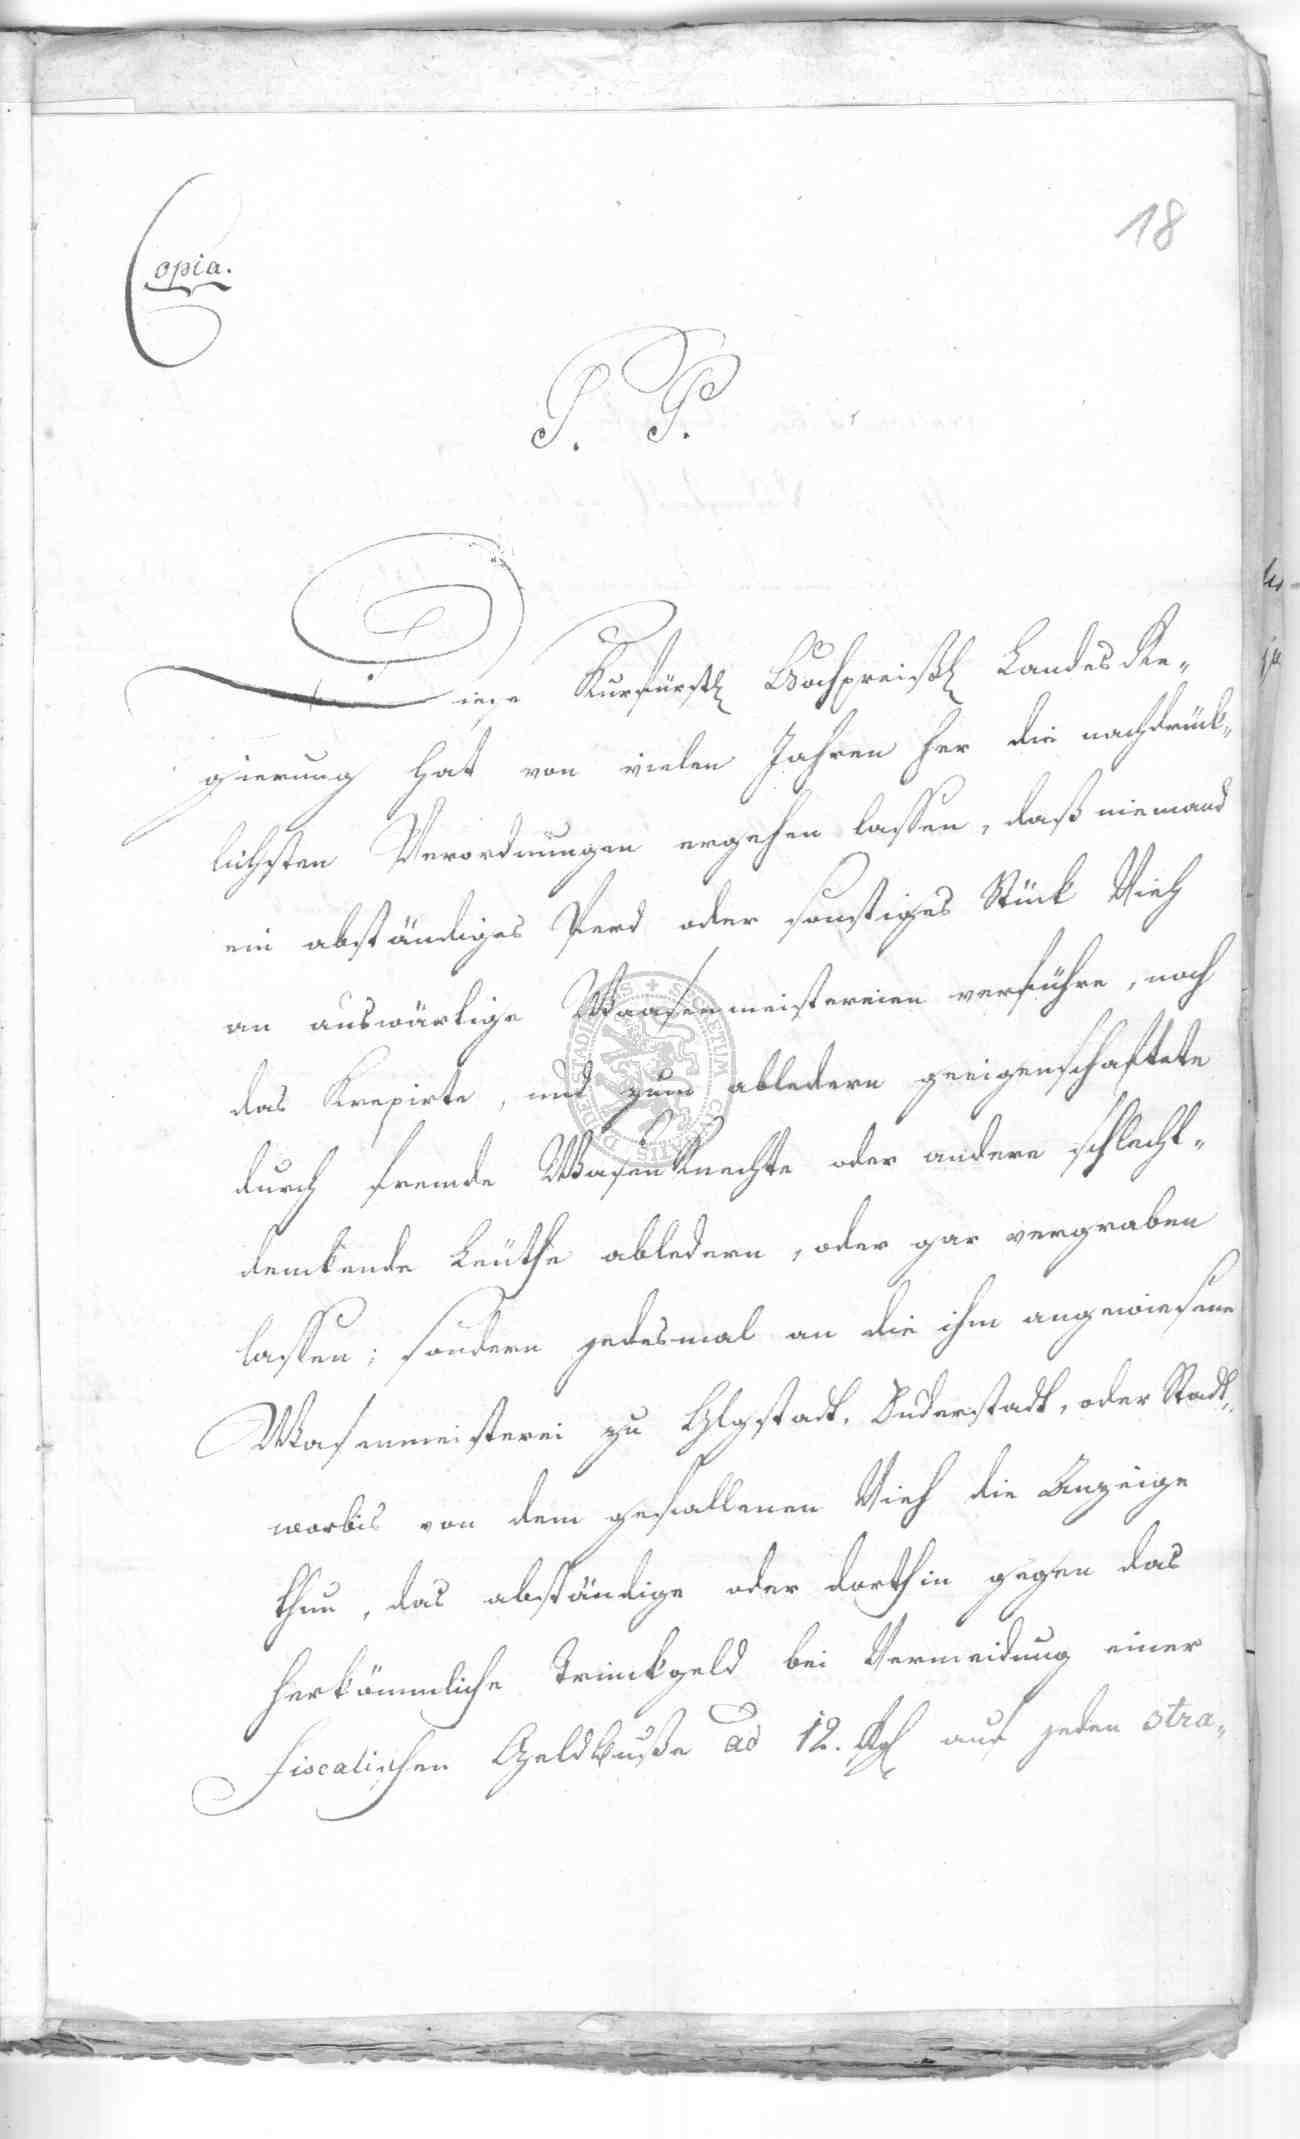 18
Copia.
P. P.
Diese Kurfürstl Hochpreißl Landes Re-
gierung hat von vielen Jahren her die nachdrück-
lichsten Verordnungen ergehen lassen, daß niemand
ein abständiges Perd oder sonstiges Stück Vieh
an auswärtige Waasenmeistereien verführe, noch
das Krepirte, und zum abledern geeigenschaftete
durch fremde Wasenknechte oder andere schlecht-
denkende Leüthe abledern, oder gar vergraben
lassen; sondern jedesmal an die ihm angewiesene
Wasenmeisterei zu Duderstadt, oder Stadt-
worbis von dem gefallenen Vieh die Anzeige
thun, das abständige oder dorthin gegen das
herkömmliche Trinckgeld bei Vermeidung einer
fiscalischen Geldbuße ad 12. Rthl auf jeden Stra-